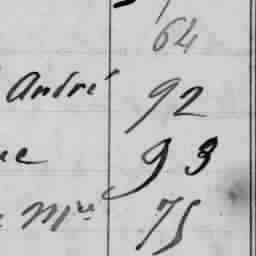 64
André 92
ue 93
Mie 75